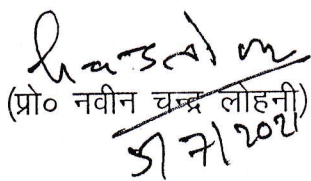 (प्रो० नवीन चन्द्र लोहनी)
5/7/2021